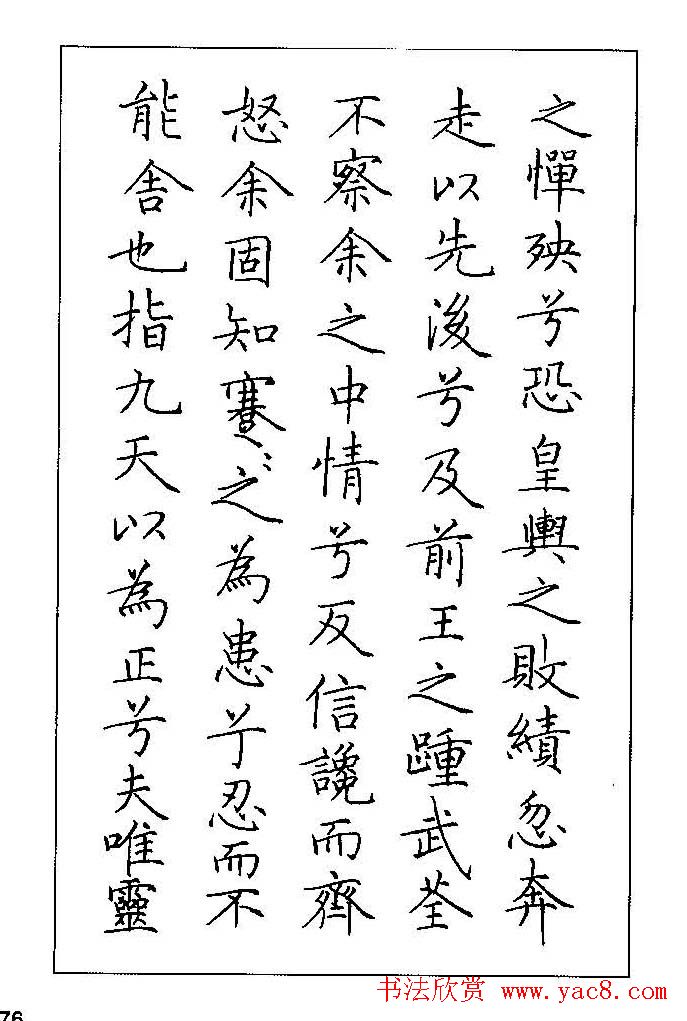 之憚殃兮恐皇輿之敗績忽奔
走以先後兮及前王之踵武荃
不察余之中情兮反信讒而齊
怒余固知蹇〻之為患兮忍而不
能舍也指九天以為正兮夫唯靈
书法欣赏 www.yac8.com
76